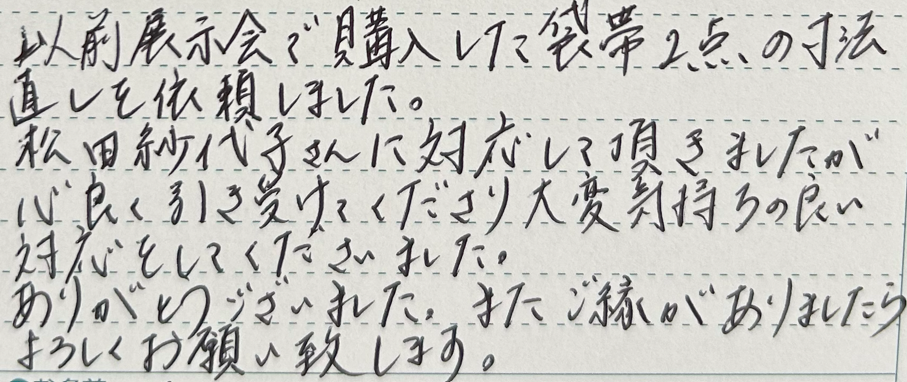 以前展示会で購入した袋帯2点の寸法
直しを依頼しました。
松田紗代子さんに対応して頂きましたが
心良く引き受けてくださり大変気持ちの良い
対応をしてくださいました。
ありがとうございました。またご縁がありましたら
よろしくお願い致します。